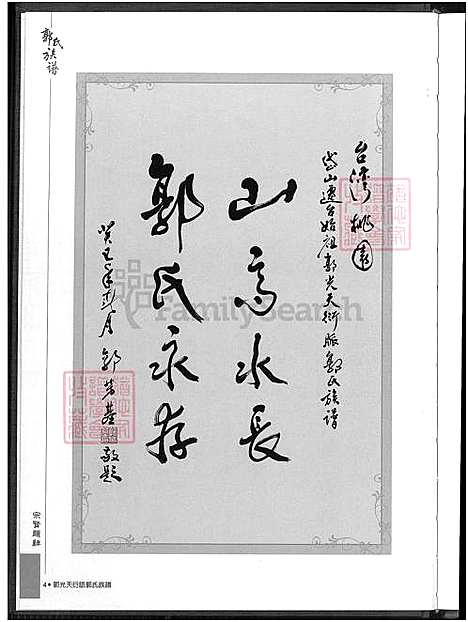 郭氏族譜
台灣桃園
岱山遷台始祖郭光天衍脈郭氏族譜
山高水長
郭氏永存
癸巳年
敬題
FamilySearch
宗賢題辭
4 • 郭光天衍脈郭氏族譜